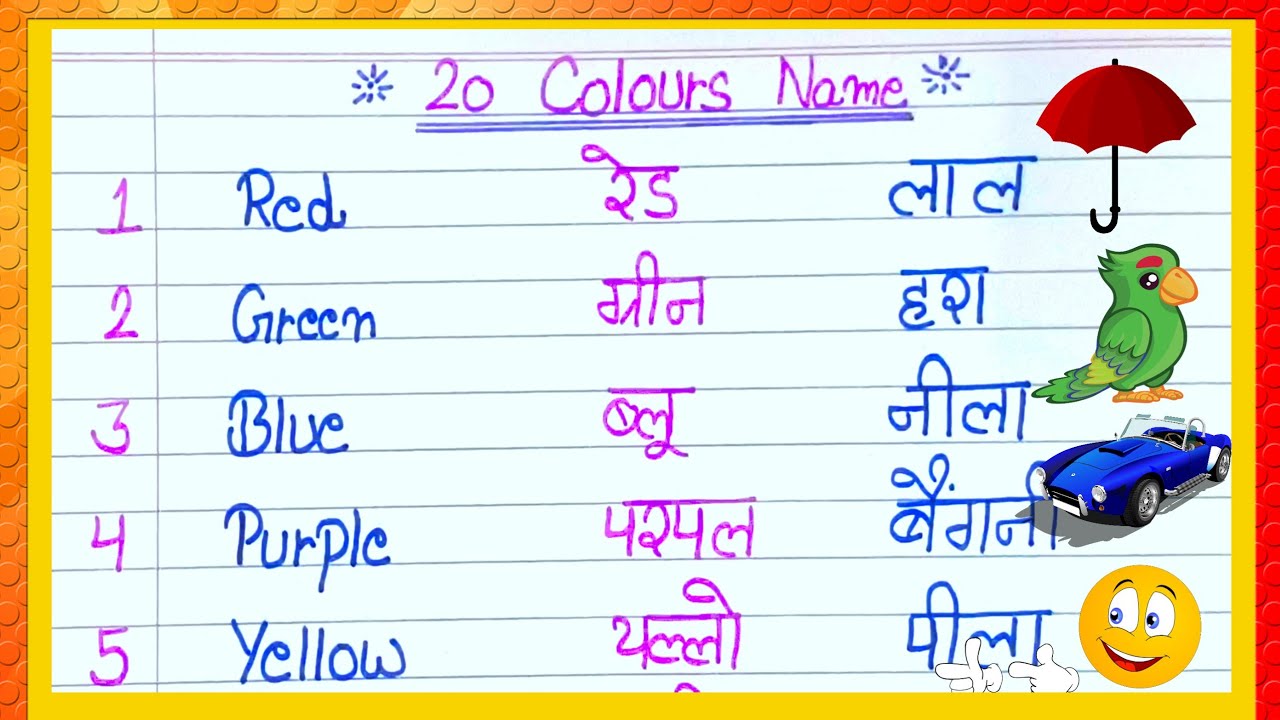 * 20 Colours Name *
1 Red रेड लाल
2 Green ग्रीन हरा
3 Blue ब्लू नीला
4 Purple परपल बैंगनी
5 Yellow यल्लो पीला